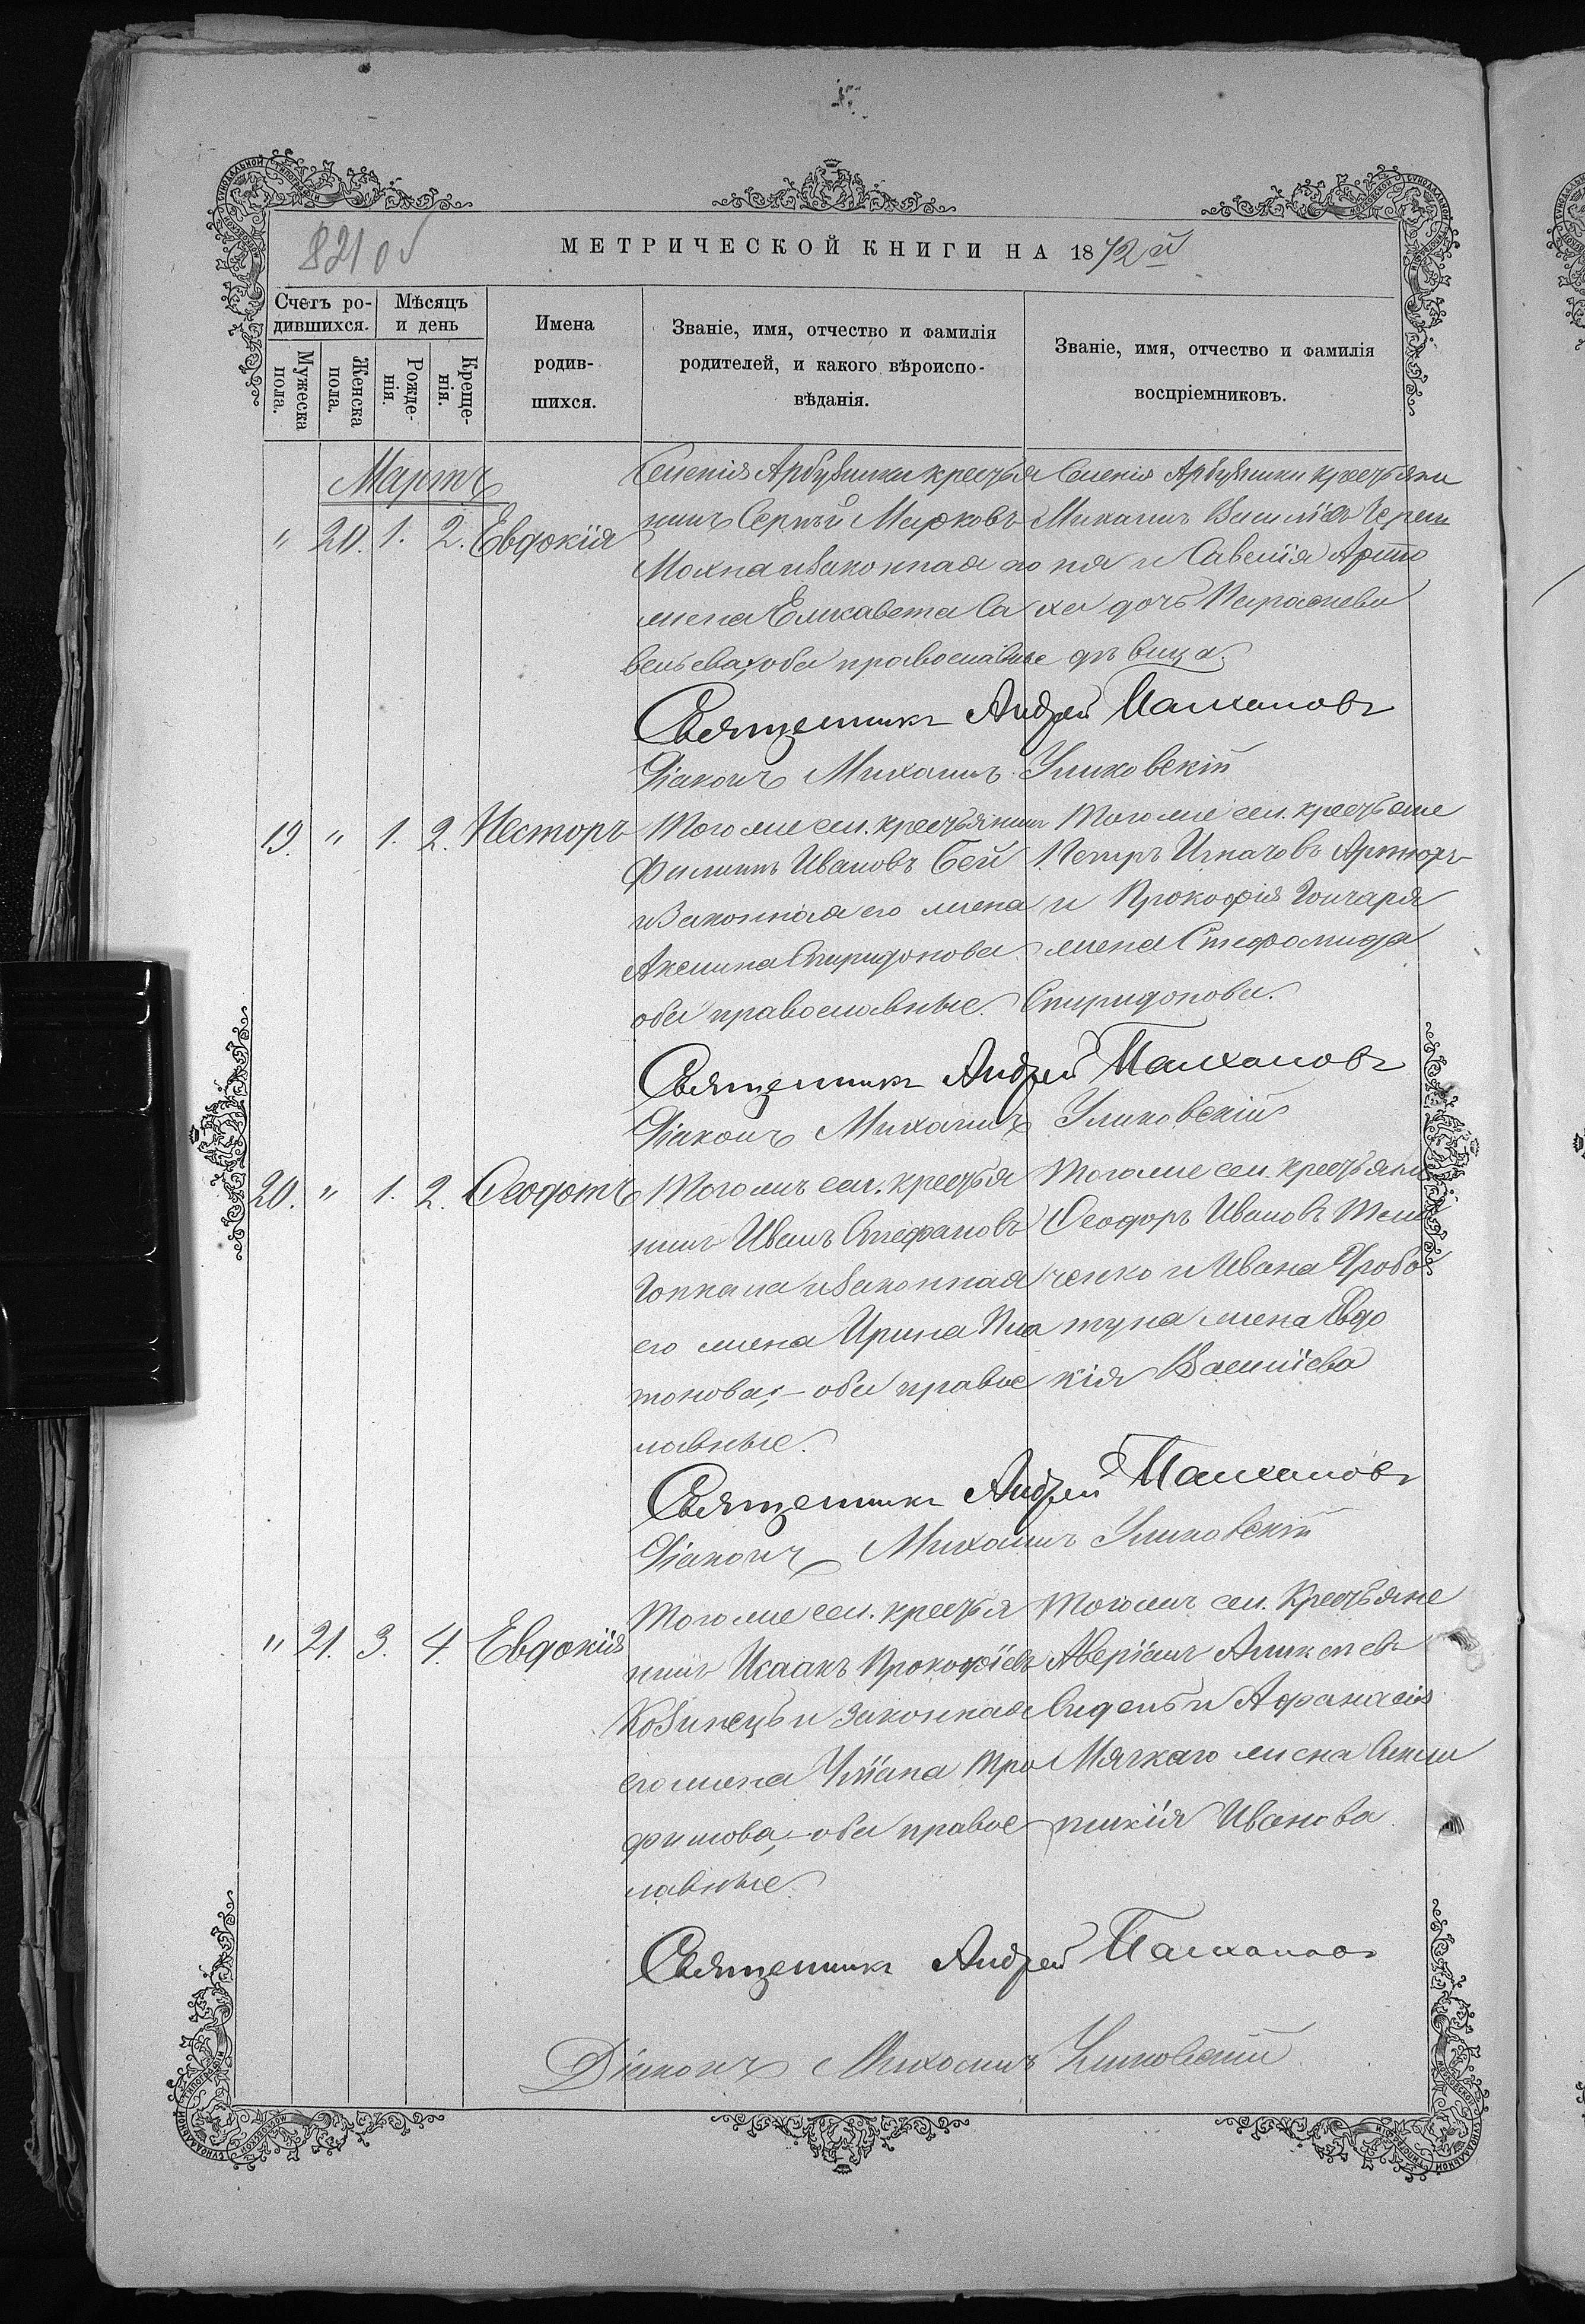 821 об
МЕТРИЧЕСКОЙ КНИГИ НА 1872 й
Счетъ ро-
дившихся.
Мужеска
пола.
Женска
пола.
Мѣсяцъ
и день
Рожде-
нія.
Креще-
нія.
Имена
родив-
шихся.
Званіе, имя, отчество и фамилія
родителей, и какого вѣроиспо-
вѣданія.
Званіе, имя, отчество и фамилія
воспріемниковъ.
Мартъ
" 20. 1. 2. Евдокія
Селенія Арбузинки крестья
нинъ Сергѣй Марковъ
Мохна и законная его
жена Елисавета Са
вельева, оба православные
Селенія Арбузинки крестьяни
Михаилъ Василіевъ Череп
ня и Савелія Арто
ха дочь Параскева
дѣвица.
Священникъ Андрей Палхановъ
Діаконъ Михаилъ Уликовскій
19. " 1. 2. Несторъ
Того же сел. крестьянинъ
Филиппъ Ивановъ Бей
и законная его жена
Аксинія Спиридонова
оба православные.
Того же сел. крестьяне
Петръ Игнатовъ Артюхъ
и Прокофія Гончаря
жена Стефанида
Спиридонова.
Священникъ Андрей Палхановъ
Діаконъ Михаилъ Уликовскій
20. " 1. 2. Ѳеодотъ
Того жъ сел. крестья
нинъ Иванъ Стефановъ
Гопкала и законная
его жена Ирина Пла
тонова, - оба правос
лавные.
Того же сел. крестьяни
Ѳеодоръ Ивановъ Тем
ченко и Ивана Дробо
туна жена Евдо
кія Василіева
Священникъ Андрей Палхановъ
Діаконъ Михаилъ Уликовскій
" 21. 3. 4. Евдокія
Того же сел. крестья
нинъ Исаакъ Прокофіевъ
Козинецъ и законная
его жена Уліана Тро
фимова, - оба правос
лавные.
Того жъ сел. Крестьяне
Аверіанъ Аникіевъ
Сидель и Афанасія
Мягкаго жена Сикли
тикія Иванова.
Священникъ Андрей Палхановъ
Діаконъ Михаилъ Уликовскій